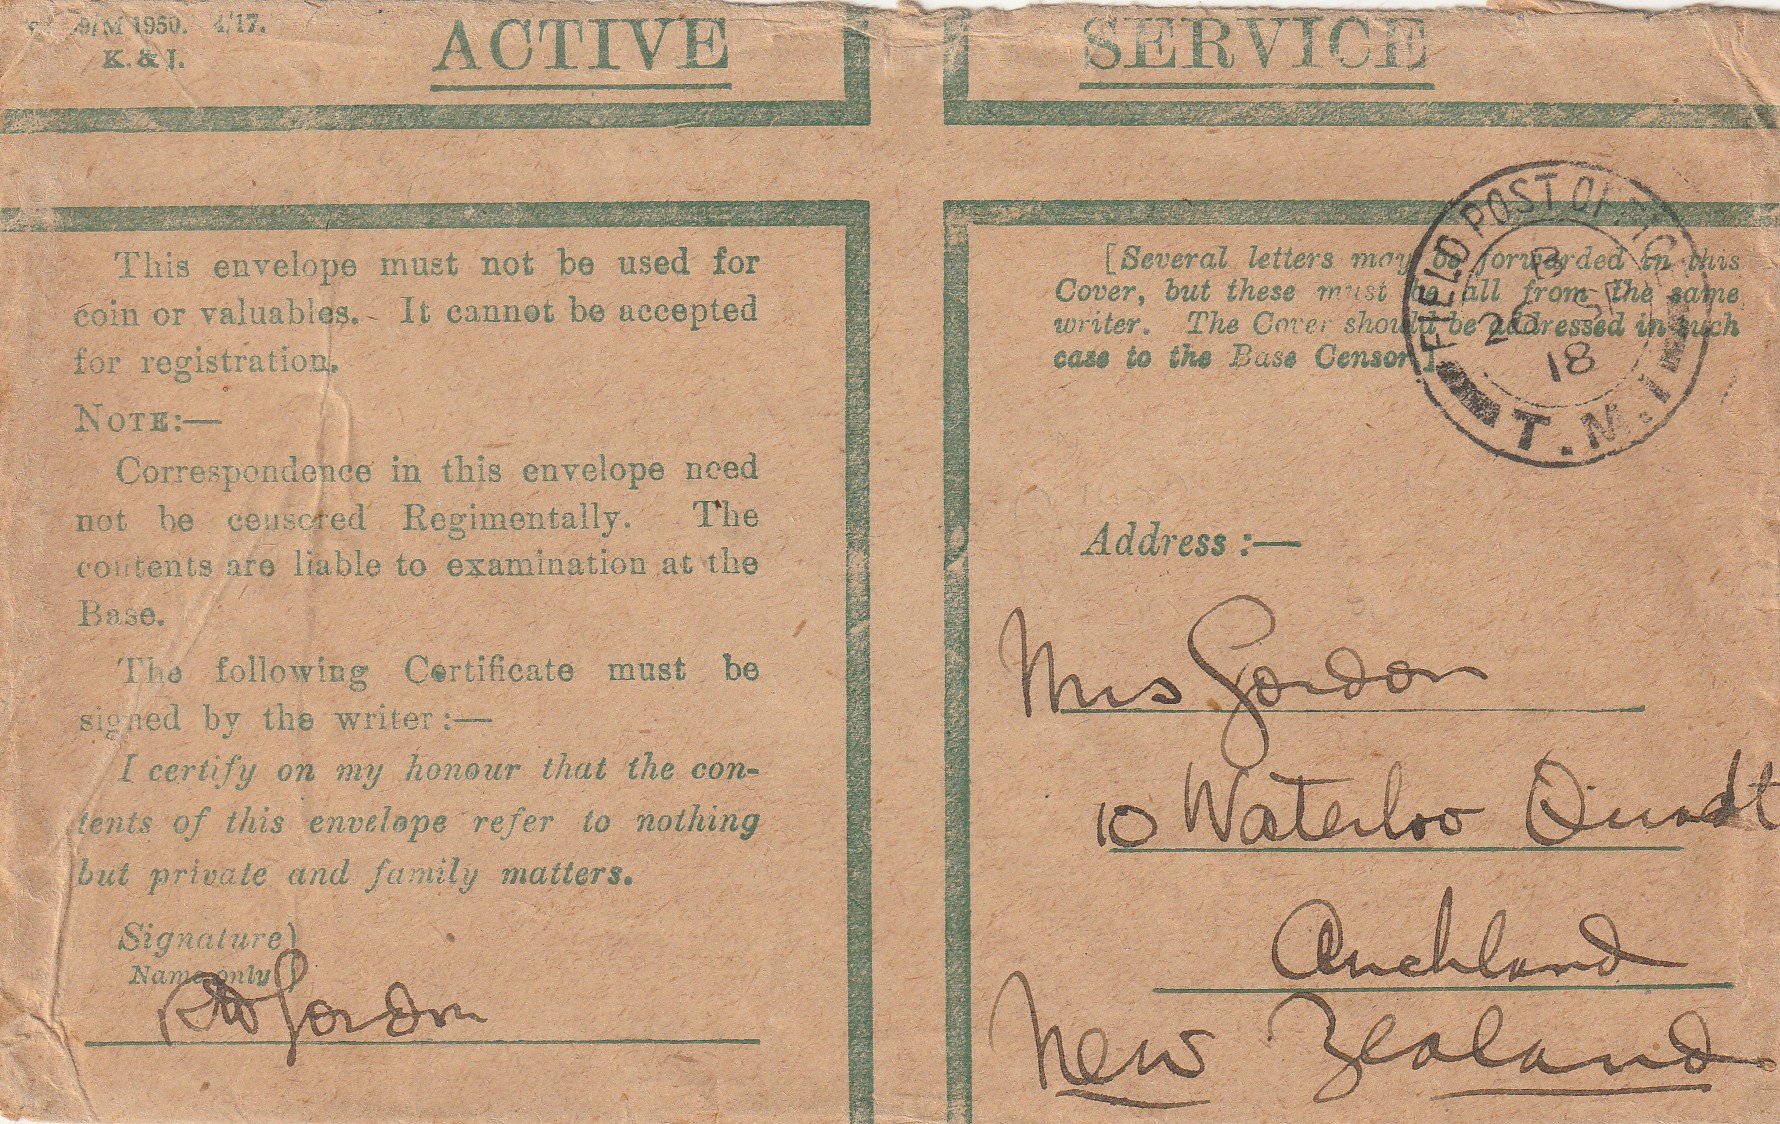 M 1950. 4/17.
K. & J.
ACTIVE SERVICE
This envelope must not be used for
coin or valuables. It cannot be accepted
for registration.
NOTE:—
Correspondence in this envelope need
not be censored Regimentally. The
contents are liable to examination at the
Base.
The following Certificate must be
signed by the writer:—
I certify on my honour that the con-
tents of this envelope refer to nothing
but private and family matters.
Signature
Name only
Gordon
[Several letters may be forwarded in this
Cover, but these must be all from the same
writer. The Cover should be addressed in such
case to the Base Censor.]
FIELD POST OFFICE
B
26 SE
18
T.M.1
Address:—
Mrs Gordon
10 Waterloo Quadt
Auckland
New Zealand